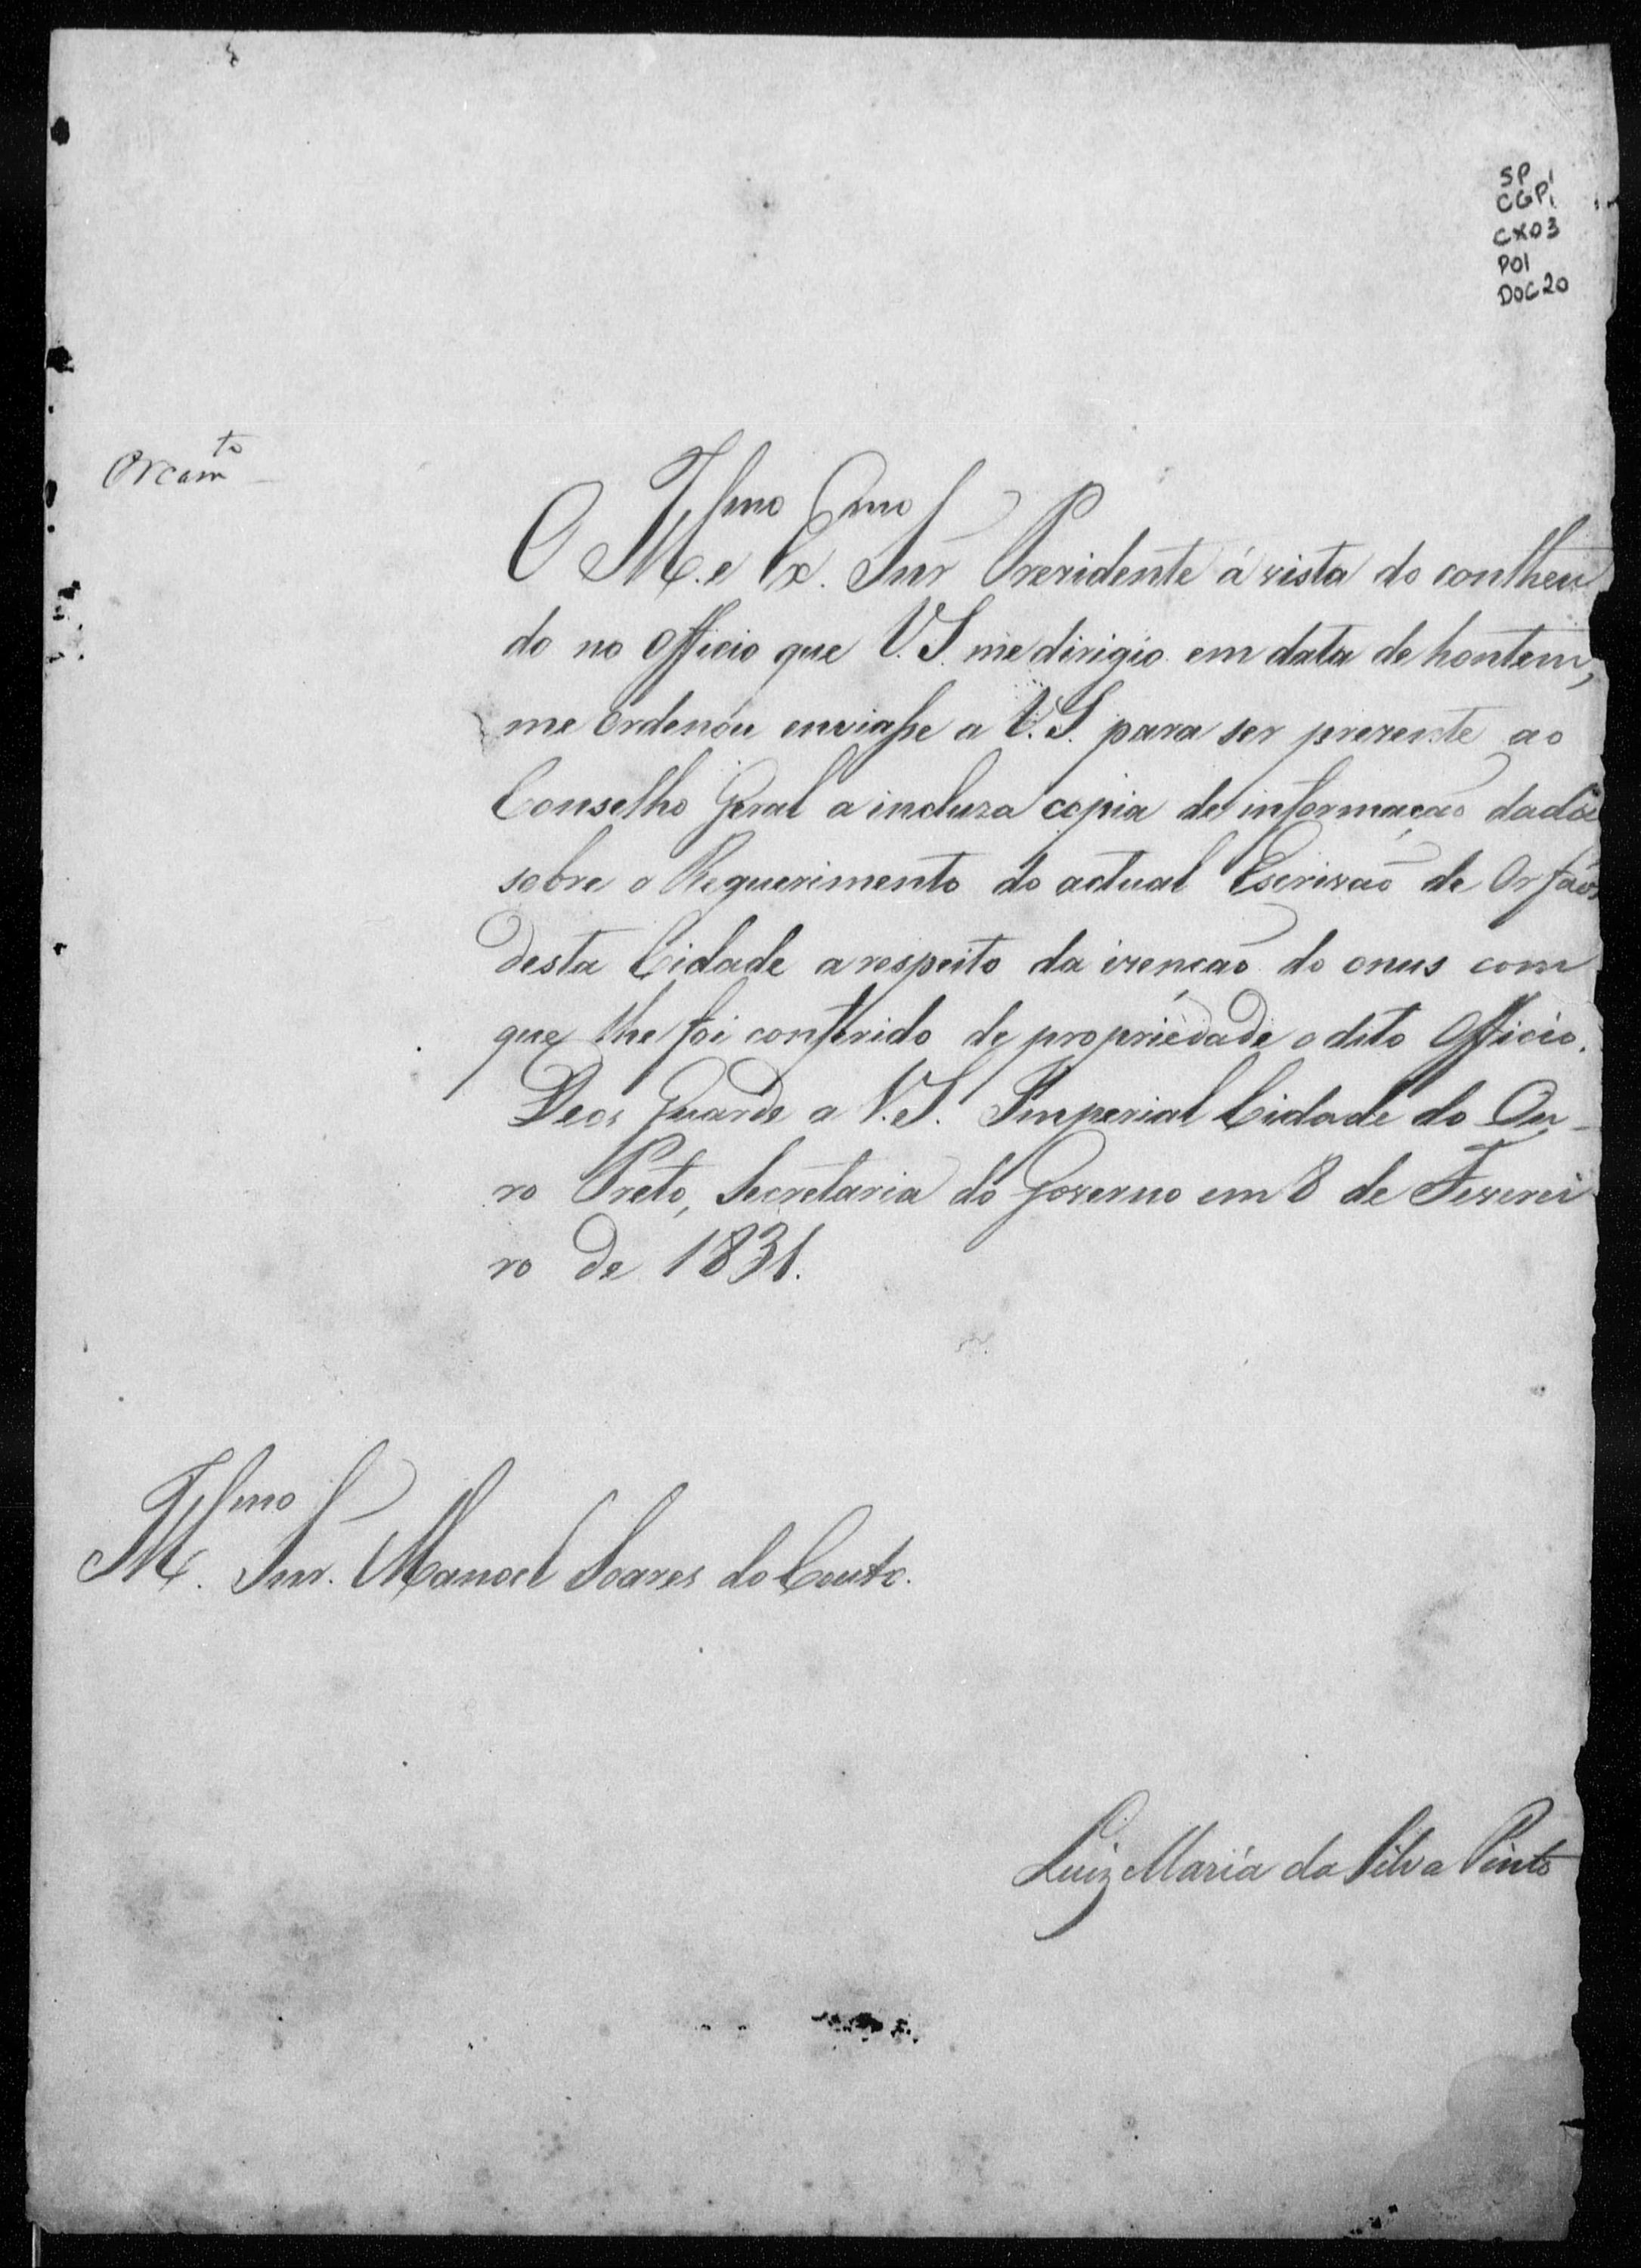 SP
CGP1
CX03
P01
DOC20
Orcamto
O Illmo e Exmo Snr Prezidente á vista do contheu
do no Officio que V.S. me dirigio em data de hontem,
me ordenou enviasse a V.S. para ser prezente ao
Conselho Geral a incluza copia de informação dada
sobre o Requerimento do actual Escrivão de Orfãos
desta Cidade a respeito da izenção do onus com
que lhe foi conferido de propriedade o dito Officio.
Deos Guarde a V.S. Imperial Cidade do Ou
ro Preto, Secretaria do Governo em 8 de Feverei
ro de 1831.
Illmo Snr. Manoel Soares do Couto.
Luiz Maria da Silva Pinto